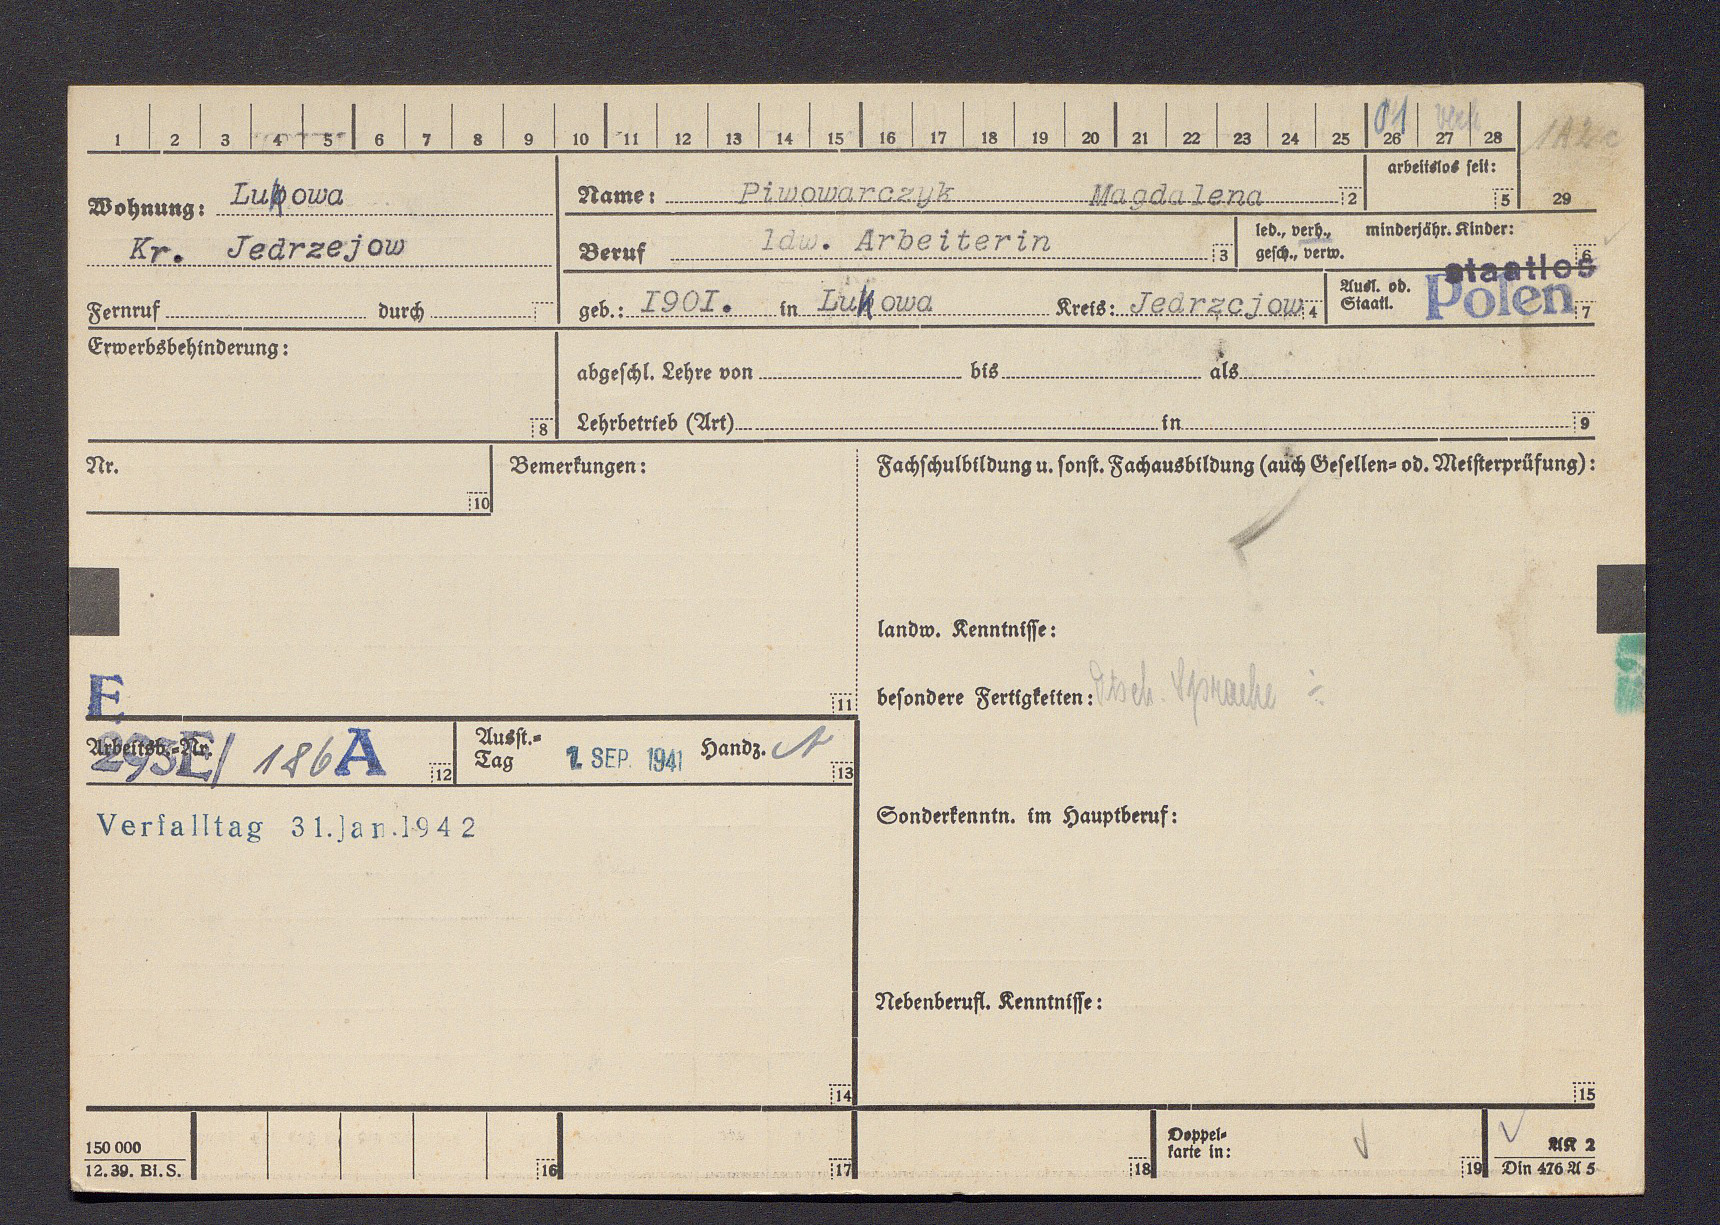 1 2 3 4 5 6 7 8 9 10 11 12 13 14 15 16 17 18 19 20 21 22 23 24 25 26 27 28
01 verh
arbeitslos seit:
5
29
Wohnung: Lukowa
Kr. Jedrzejow
Fernruf durch
Name: Piwowarczyk Magdalena 2
Beruf ldw. Arbeiterin 3
led., verh., gesch., verw.
minderjähr. Kinder:
6
geb.: I90I. in Lukowa Kreis: Jedrzcjow 4
Ausl. od. Staatl.
staatlos
Polen 7
Erwerbsbehinderung:
8
abgeschl. Lehre von bis als
Lehrbetrieb (Art) in 9
Nr.
10
Bemerkungen:
11
Fachschulbildung u. sonst. Fachausbildung (auch Gesellen= od. Meisterprüfung):
landw. Kenntnisse:
besondere Fertigkeiten: Dtsch. Sprache ÷
E
Arbeitsb.=Nr.
293E/ 186 A 12
Ausst.=
Tag
1. SEP. 1941 Handz. 13
Verfalltag 31.Jan.1942
Sonderkenntn. im Hauptberuf:
Nebenberufl. Kenntnisse:
14
15
150 000
12. 39. Bl. S.
16
17
18
Doppel=
karte in:
19
AK 2
Din 476 A 5